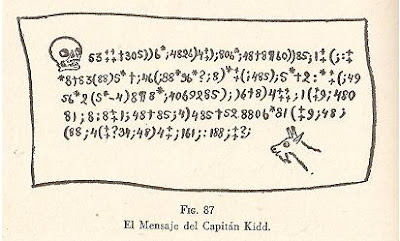 53‡‡†305))6*;4826)4‡);806*;48†8¶60))85;1‡(;:‡
*8†83(88)5*†;46(;88*96*?;8)*‡(;485);5*†2:*‡(;49
56*2(5*-4)8¶8*;4069285);)6†8)4‡‡;1(‡9;480
81;8:8‡1;48†85;4)485†528806*81(‡9;48;
(88;4(‡?34;48)4‡;161;:188;‡?;
FIG. 87
El Mensaje del Capitán Kidd.